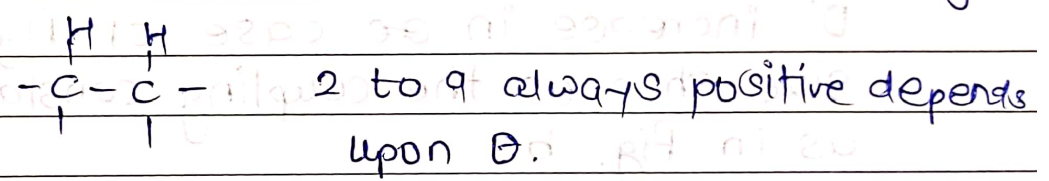 H H
-C-C- 2 to 9 always positive depends
upon θ.